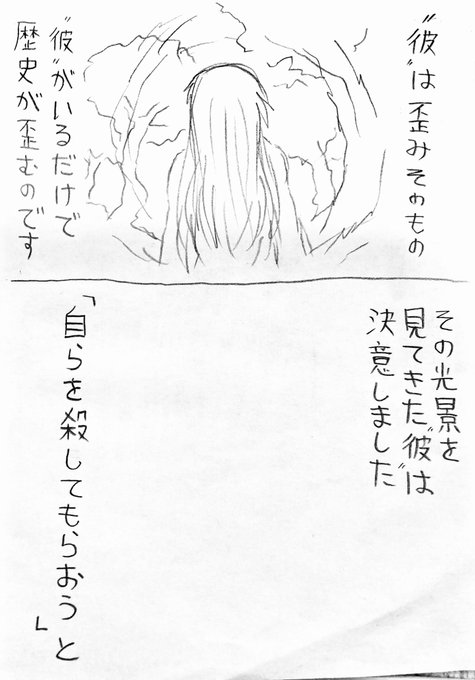 〝彼〟は歪みそのもの
〝彼〟がいるだけで
歴史が歪むのです
その光景を
見てきた〝彼〟は
決意しました
「自らを殺してもらおうと」